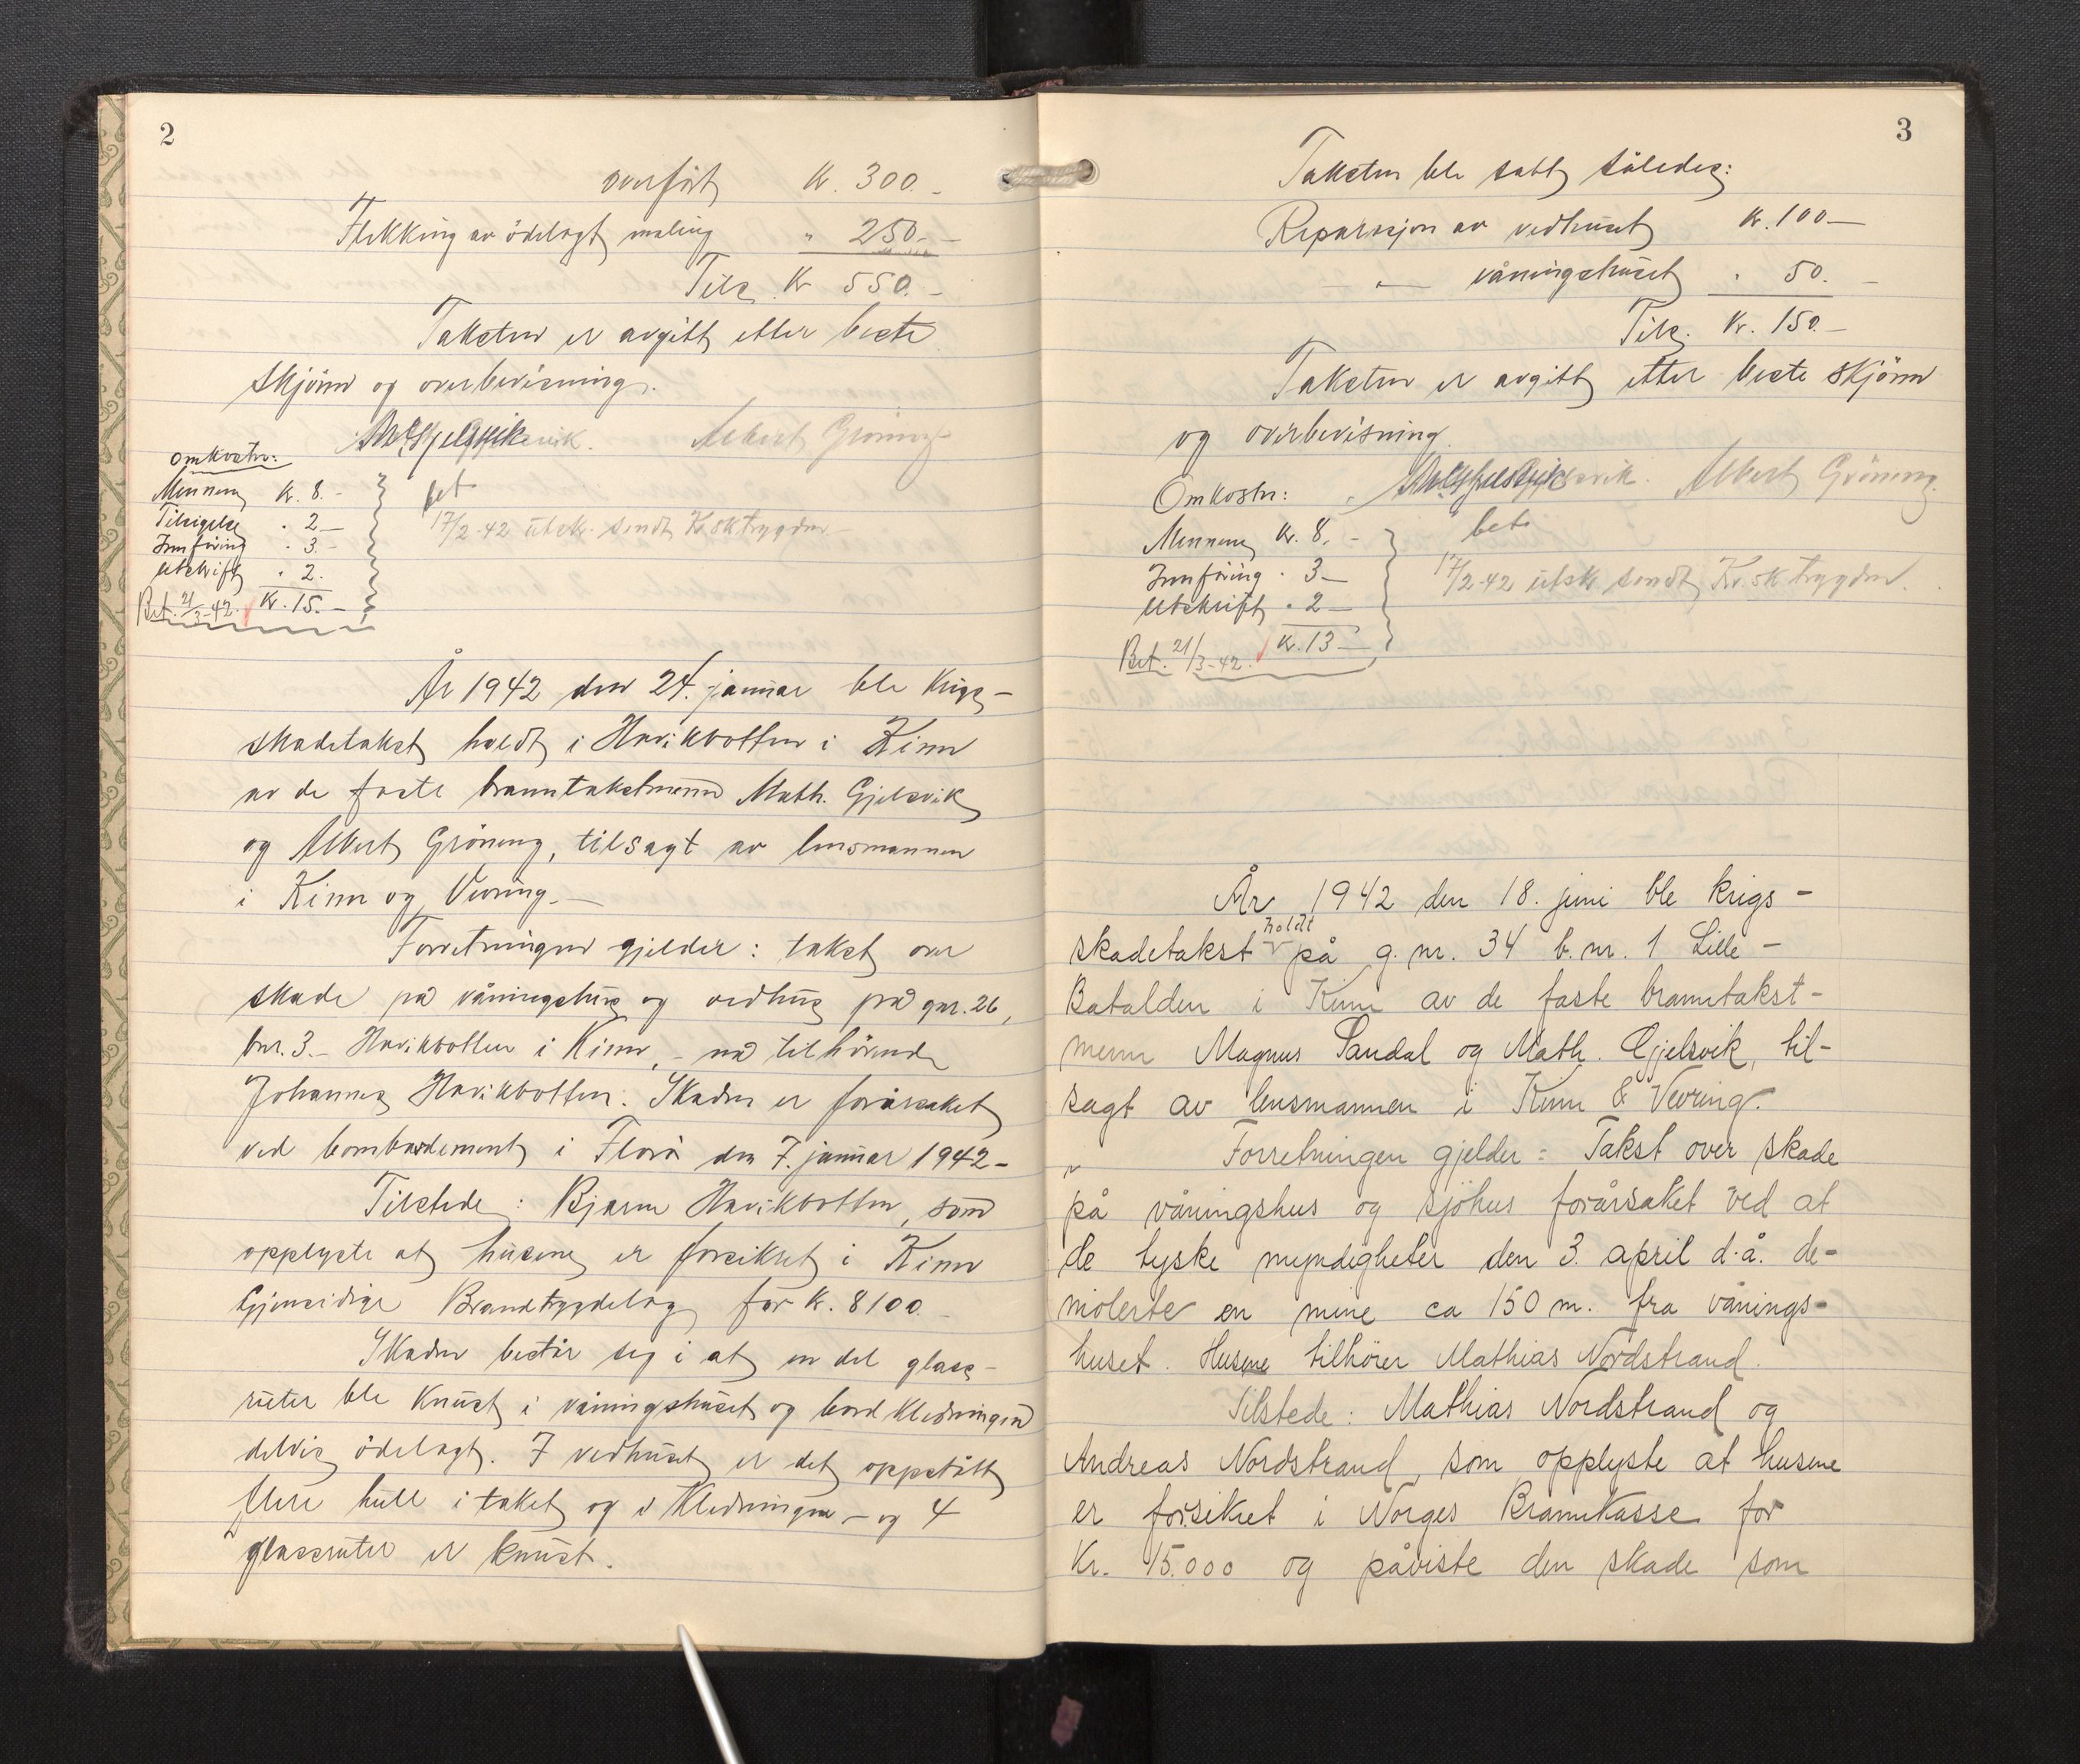 2
overført Kr. 300.-
Flekking av ödelagt maling " 250.-
Tils. Kr 550.-
Taksten er avgitt etter beste
skjönn og overbevisning.
Albert Gröning
Omkostn:
Mennene Kr. 8.-
Tilsigelse " 2-
Innföring " 3.-
Utskrift " 2.
Bet. 21/3-42. Kr. 15.-
bet
17/2-42 utskr. sendt Kr.sk.trygden-
År 1942 den 24. januar ble krigs-
skadetakst holdt i Havikbotten i Kinn
av de faste branntakstmenn Math. Gjelsvik
og Albert Gröning, tilsagt av lensmannen
i Kinn og Vevring.-
Forretningen gjelder: takst over
skade på våningshus og vedhus på gnr. 26,
bnr. 3.- Havikbotten i Kinn,- nå tilhörende
Johannes Havikbotten. Skaden er forårsaket
ved bombardement i Florö den 7. januar 1942-
Tilstede: Bjarne Havikbotten, som
opplyste at husene er forsikret i Kinn
Gjensidige Brandtrygdelag for kr. 8100.-
Skaden består seg i at en del glass-
ruter ble knust i våningshuset og bordkledningen
delvis ödelagt. I vedhuset er det oppstått
flere hull i taket og i kledningen - og 4
glassruter er knust.
3
Taksten ble satt således:
Reparasjon av vedhuset Kr. 100-
-"- våningshuset " 50.-
Tils. Kr. 150.-
Taksten er avgitt etter beste skjönn
og overbevisning.
Albert Gröning.
Omkostn:
Mennene Kr. 8.-
Innföring " 3-
Utskrift " 2-
Bet. 21/3-42. Kr. 13-
bet.
17/2-42 utskr. sendt Kr.sk.trygden.
År 1942 den 18. juni ble krigs-
skadetakst holdt på g. nr. 34 b. nr. 1 Lille-
Batalden i Kinn av de faste branntakst-
menn Magnus Sandal og Math. Gjelsvik, til-
sagt av lensmannen i Kinn & Vevring.
Forretningen gjelder: Takst over skade
på våningshus og sjöhus forårsaket ved at
de tyske myndigheter den 3. april d.å. de-
molerte en mine ca 150 m. fra vånings-
huset. Husene tilhører Mathias Nordstrand.
Tilstede: Mathias Nordstrand og
Andreas Nordstrand, som opplyste at husene
er forsikret i Norges Brannkasse for
Kr. 15.000 og påviste den skade som